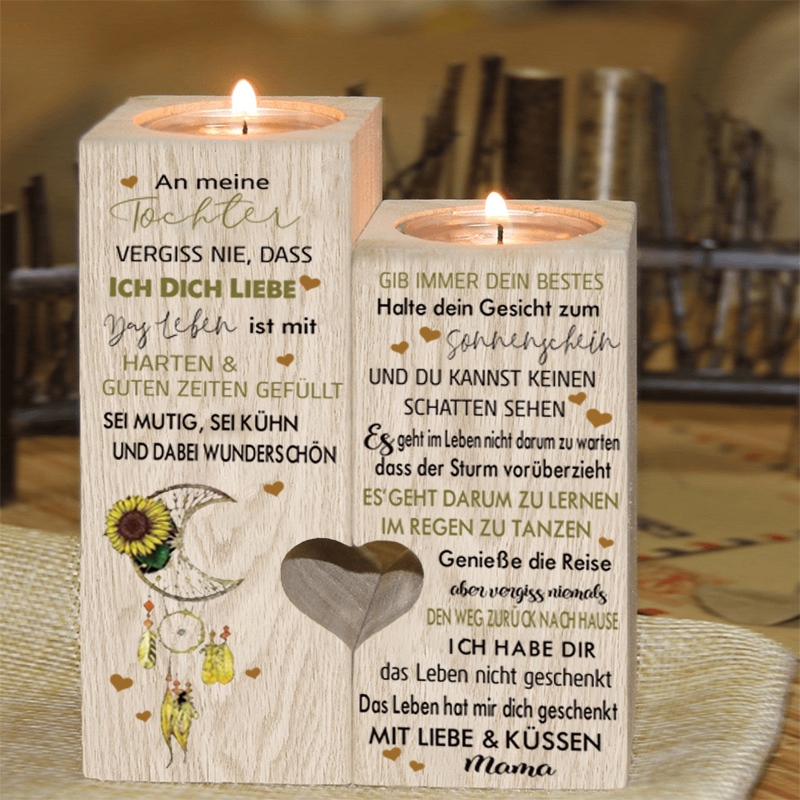 An meine
Tochter
VERGISS NIE, DASS
ICH DICH LIEBE
Das Leben ist mit
HARTEN &
GUTEN ZEITEN GEFÜLLT
SEI MUTIG, SEI KÜHN
UND DABEI WUNDERSCHÖN
GIB IMMER DEIN BESTES
Halte dein Gesicht zum
Sonnenschein
UND DU KANNST KEINEN
SCHATTEN SEHEN
Es geht im Leben nicht darum zu warten
dass der Sturm vorüberzieht
ES'GEHT DARUM ZU LERNEN
IM REGEN ZU TANZEN
Genieße die Reise
aber vergiss niemals
DEN WEG ZURÜCK NACH HAUSE
ICH HABE DIR
das Leben nicht geschenkt
Das Leben hat mir dich geschenkt
MIT LIEBE & KÜSSEN
Mama